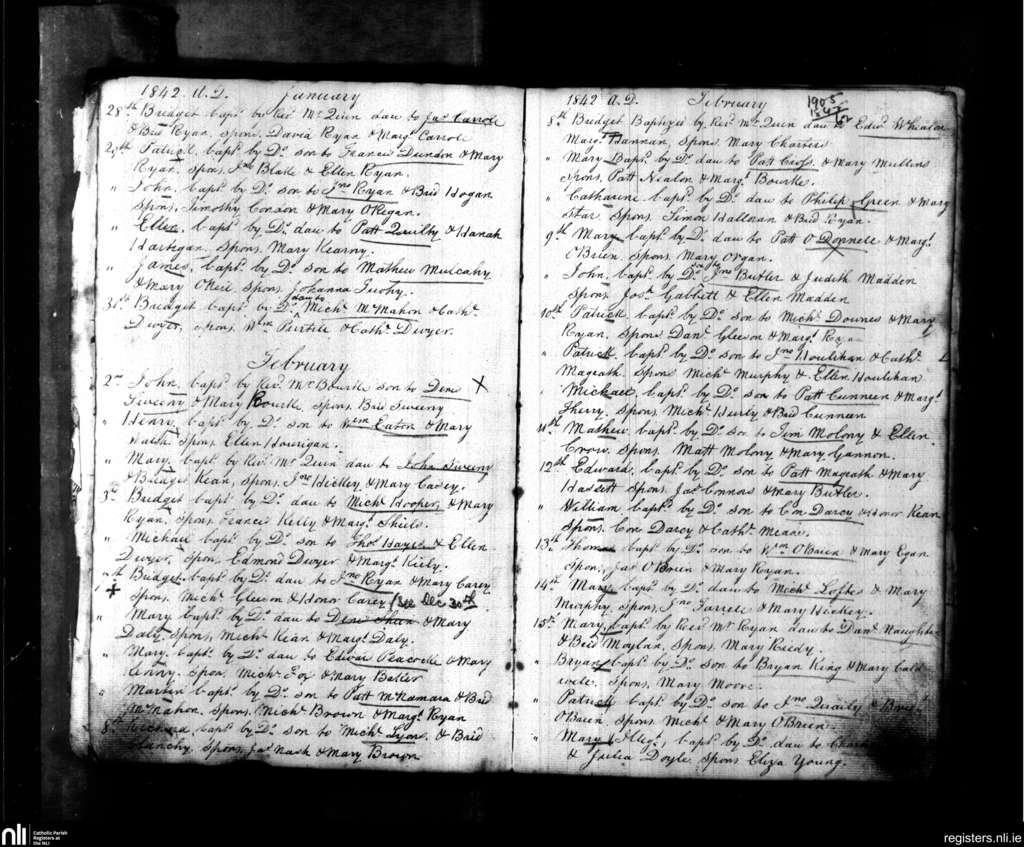 1842 A.D. January
28th Bridget bapt. by Revd. Mr. Quin dau to Jas. Carroll
& Brid Ryan, Spons. David Ryan & Margt. Carroll
29th Patrick, bapt. by Do. son to Francis Dundon & Mary
Ryan, spons. Jno. Blake & Ellen Ryan.
" John, bapt. by Do. son to Jno. Ryan & Brid Hogan
Spons. Timothy Condon & Mary OKegan.
" Ellen, bapt. by Do. dau to Patt Quilty & Hanah
Hartigan, Spons. Mary Kearny
" James, bapt. by Do. son to Mathew Mulcahy
& Mary ONeil Spons. Johanna Tuohy.
31st Bridget bapt. by Do. dau to Michl. McMahon & Cathe.
Dwyer, spons. Wlm Purtill & Cathe. Dwyer.
February
2nd John, bapt. by Revd. Mr. Bourke son to Dens X
Sweeny & Mary Rourke, Spons. Brid Sweeny
" Henry, bapt. by Do. son to Wem Eaton & Mary
Walsh Spons. Ellen Hourigan.
" Mary, bapt. by Revd. Mr. Quin dau to John Sweeny
& Bridget Kean, Spons. Jno. Hickey, & Mary Casey.
3d Bridget bapt. by Do. dau to Michl. Hooper, & Mary
Ryan, Spons. Francis Kelly & Margt. Shiels.
" Michael bapt. by Do. son to Thos. Hayes & Ellen
Dwyer, Spon. Edmond Dwyer & Margt. Kiely.
"th Bridget bapt. by Do. dau to Jno. Ryan & Mary Carey
+ Spons. Michl. Gleeson & Honor Carey (See Dec 30th
" Mary bapt. by Do. dau to Dens Shean & Mary
Daly, Spons. Michl. Kean & Margt. Daly.
" Mary, bapt. by Do. dau to Edwar Peacocke & Mary
Kenny. Spon. Michl. Fox & Mary Baker
" Martin bapt. by Do. son to Patt McNamara & Brid
McMahon. Spons. Michl. Brown & Margt. Ryan
8th Richard, bapt. by Do. son to Michl. Lyons, & Brid
Clanchy, Spons. Jas. Nash & Mary Brown
1842 A.D. February
1905
1842
62
8th Bridget Baptized by Revd. Mr. Quin dau to Edwd. Whealon
Margt. Hannan, Spons. Mary Charters
" Mary Bapt. by Do. dau to Patt Cross, & Mary Mullins
Spons. Patt Nealon & Margt. Bourke.
" Catharine bapt. by Do. dau to Philip Green & Marg
Star Spons. Simon Hallinan & Brid Ryan.
9th Mary bapt. by Do. dau to Patt O Donnell & Margt.
OBrien Spons. Mary Organ.
" John, bapt. by Do. son to Jno Butler & Judith Madden
Spons Josh. Gabbett & Ellen Madden
10th Patrick bapt. by Do. son to Michl. Downes & Mary
Ryan, Spons Danl. Gleeson & Margt. Ryan
" Patrick bapt. by Do. son to Jno Houlihan & Cathe.
Magrath Spons Michl. Murphy & Ellen Houlihan
" Michael bapt. by Do. son to Patt Cunneen & Margt.
Sherry, Spons. Michl. Hurly & Brid Cunneen
11th Mathew, bapt. by Do. son to Jim Molony & Ellen
Crow, Spons. Matt Molony & Mary Gannon.
12th Edward, bapt. by Do. son to Patt Magrath & Mary
Hassett Spons. Jas. Connors & Mary Butler.
" William bapt. by Do. son to Con Darcy & Honor Kean
Spons. Con Darcy & Cathe. Meade.
13th Thomas bapt. by Do. son to Wm OBrien & Mary Egan
Spon, Jas OBrien & Mary Ryan.
14th Mary bapt. by Do. dau to Michl. Loftus & Mary
Murphy, Spons. Jno Farrell & Mary Hickey.
15th Mary, bapt. by Revd Mr. Ryan dau to Danl. Naughten
& Brid Moylan, Spons. Mary Reedy.
" Bryan bapt. by Do. son to Bryan King & Mary Cald
well. Spons. Mary Moore.
" Patrick bapt. by Do. son to Jno Quaily & Brid
OBrien, Spons Michl. & Mary OBrien.
" Mary (Illegt.) bapt. by Do. dau to
& Julia Doyle Spons Eliza Young.
nli Catholic Parish
Registers at
the NLI
registers.nli.ie